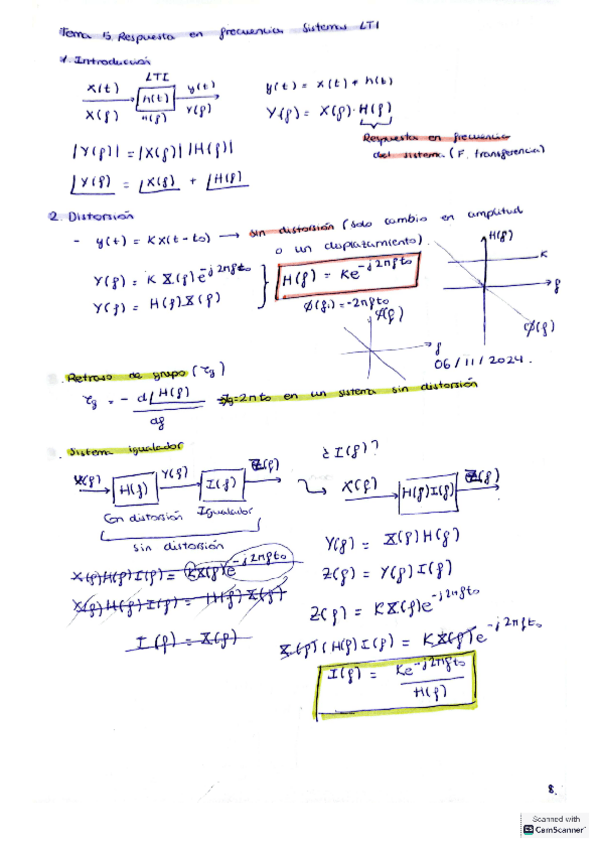 Tema 5. Respuesta en frecuencia Sistemas LTI
1. Introducción
LTI
x(t) h(t) y(t) y(t) = x(t) * h(t)
X(f) H(f) Y(f) Y(f) = X(f)·H(f)
Respuesta en frecuencia
del sistema (F. transferencia)
|Y(f)| = |X(f)| |H(f)|
∠Y(f) = ∠X(f) + ∠H(f)
2. Distorsión
- y(t) = Kx(t-to) → sin distorsión (solo cambio en amplitud
o un desplazamiento).
H(f)
K
f
Ø(f)
Y(f) = K X(f)e^-j2πfto
Y(f) = H(f)X(f)
H(f) = Ke^-j2πfto
Ø(f) = -2πfto
f
06/11/2024.
. Retraso de grupo (τg)
τg = - d∠H(f) / df τg=2πto en un sistema sin distorsión
. Sistema igualador
¿I(f)?
X(f) H(f) Y(f) I(f) Z(f) X(f) H(f)I(f) Z(f)
Con distorsión Igualador
sin distorsión
Y(f) = X(f)H(f)
X(f)H(f)I(f) = KX(f)e^-j2πfto
Z(f) = Y(f)I(f)
X(f)H(f)I(f) = H(f)X(f)
Z(f) = KX(f)e^-j2πfto
I(f) = X(f)
X(f)(H(f)I(f) = KX(f)e^-j2πfto
I(f) = Ke^-j2πfto / H(f)
8.
Scanned with
CS CamScanner